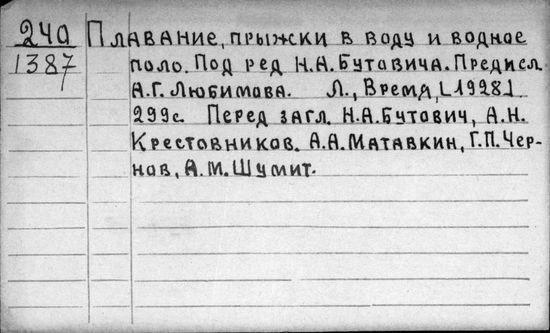 24а Плавание, прыжки в воду и водное
1387 поло. Под ред Н.А.Бутовича. Предисл
А.Г. Любимова. Л., Время, [1928]
299с. Перед загл. Н.А.Бутович, А.Н.
Крестовников. А.А.Матавкин, Г.П.Чер-
нов, А.М.Шумит.